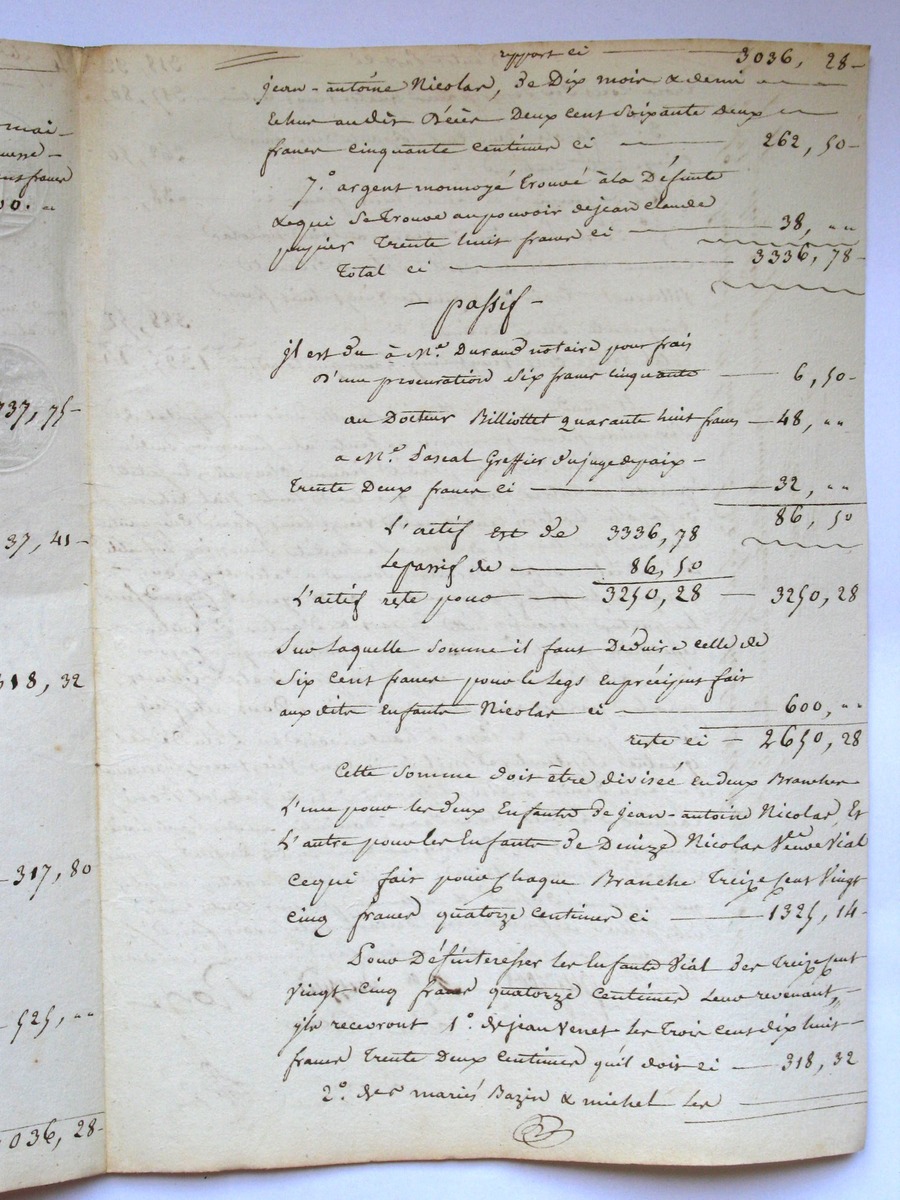 mai-
ent francs
00. "
737, 75-
37, 41-
318, 32
-317, 80
- 525, "
3036, 28-
report ci 3036, 28-
jean-antoine Nicolas, de Dix mois & demi
Echus audit Décès Deux cent soixante deux
francs cinquante centimes ci 262, 50-
7.° argent monnoyé trouvé à la Défunte
& qui se trouve au pouvoir de jean claude
papier Trente huit francs ci 38, "
Total ci 3336, 78-
- passif -
jl est du à M.e Durand notaire pour frais
D'une procuration six francs cinquante 6, 50-
au Docteur Billiottet quarante huit francs - 48, "
a M.e Pascal Greffier du juge de paix -
Trente Deux francs ci 32, "
86, 50
L'actif est de 3336, 78
Le passif de 86, 50
L'actif reste pour 3250, 28 - 3250, 28
Sur laquelle somme il faut Déduire celle de
six cent francs pour le legs en préciput fait
auxdits Enfants Nicolas ci 600, "
reste ci - 2650, 28
Cette somme doit être divisée en deux Branches
L'une pour les deux Enfants de jean-antoine Nicolas, Et
L'autre pour les Enfants de Denize Nicolas Veuve Vial
ce qui fait pour chaque Branche Treize cent Vingt
cinq francs quatorze centimes ci 1325, 14-
Pour Désintéresser les Enfants Vial des Treize cent
Vingt cinq francs quatorze centimes Leur revenant,
jls recevront 1.° de jean Venet les Trois cent dix huit
francs Trente Deux centimes qu'il doit ci 318, 32
2.° des mariés Bazin & michel les